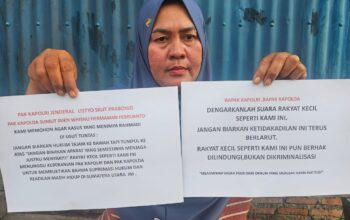 PAK KAPOLRI JENDERAL LISTYO SIGIT PRABOWO
PAK KAPOLDA SUMUT IRJEN WHISNU HERMAWAN FEBRUANTO
KAMI MEMOHON AGAR KASUS YANG MENIMPA
DI USUT TUNTAS :
JANGAN BIARKAN HUKUM TAJAM KE BAWAH TAPI TUMPUL KE
ATAS "JANGAN BIARKAN APARAT YANG SEHARUSNYA MENJAGA
JUSTRU MENYAKITI" RAKYAT KECIL SEPERTI KAMI INI
MENUNGGU KEBERANIAN PAK KAPOLRI DAN PAK KAPOLDA
UNTUK MEMBUKTIKAN BAHWA SUPREMASI HUKUM DAN
KEADILAN MASIH HIDUP DI SUMATERA UTARA INI .
BAPAK KAPOLRI ,BAPAK KAPOLDA
DENGARKANLAH SUARA RAKYAT KECIL
SEPERTI KAMI INI,
JANGAN BIARKAN KETIDAKADILAN INI TERUS
BERLARUT.
RAKYAT KECIL SEPERTI KAMI INI PUN BERHAK
DILINDUNGI,BUKAN DIKRIMINALISASI